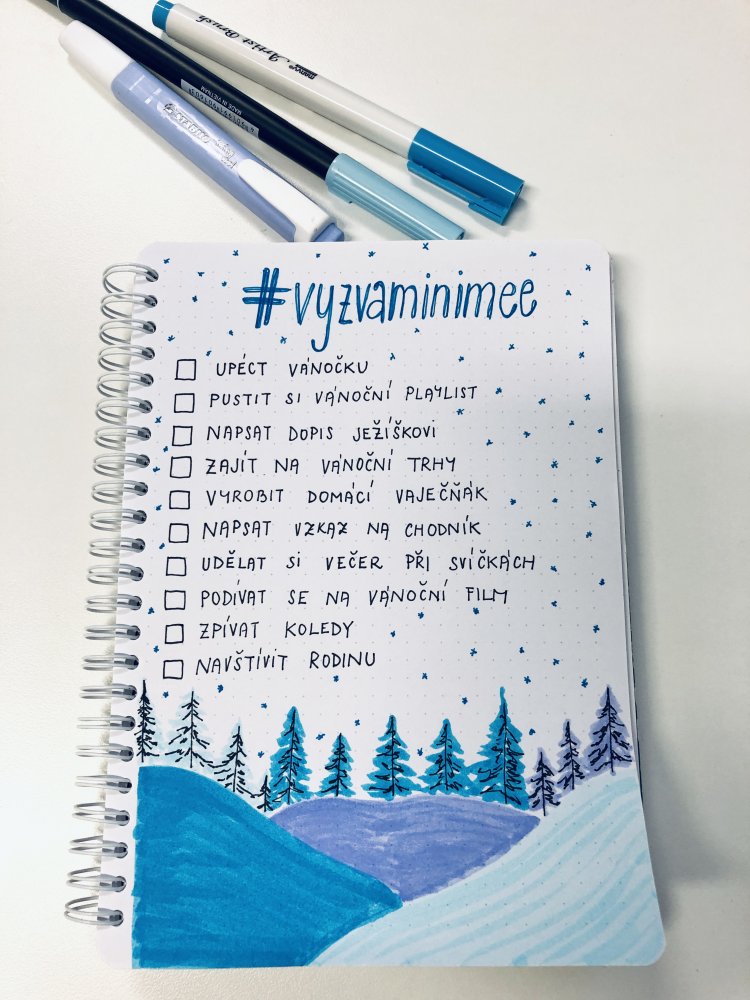 Artist Brush
MADE IN VIETNAM
#vyzvaminimee
UPÉCT VÁNOČKU
PUSTIT SI VÁNOČNÍ PLAYLIST
NAPSAT DOPIS JEŽÍŠKOVI
ZAJÍT NA VÁNOČNÍ TRHY
VYROBIT DOMÁCÍ VAJEČŇÁK
NAPSAT VZKAZ NA CHODNÍK
UDĚLAT SI VEČER PŘI SVÍČKÁCH
PODÍVAT SE NA VÁNOČNÍ FILM
ZPÍVAT KOLEDY
NAVŠTÍVIT RODINU